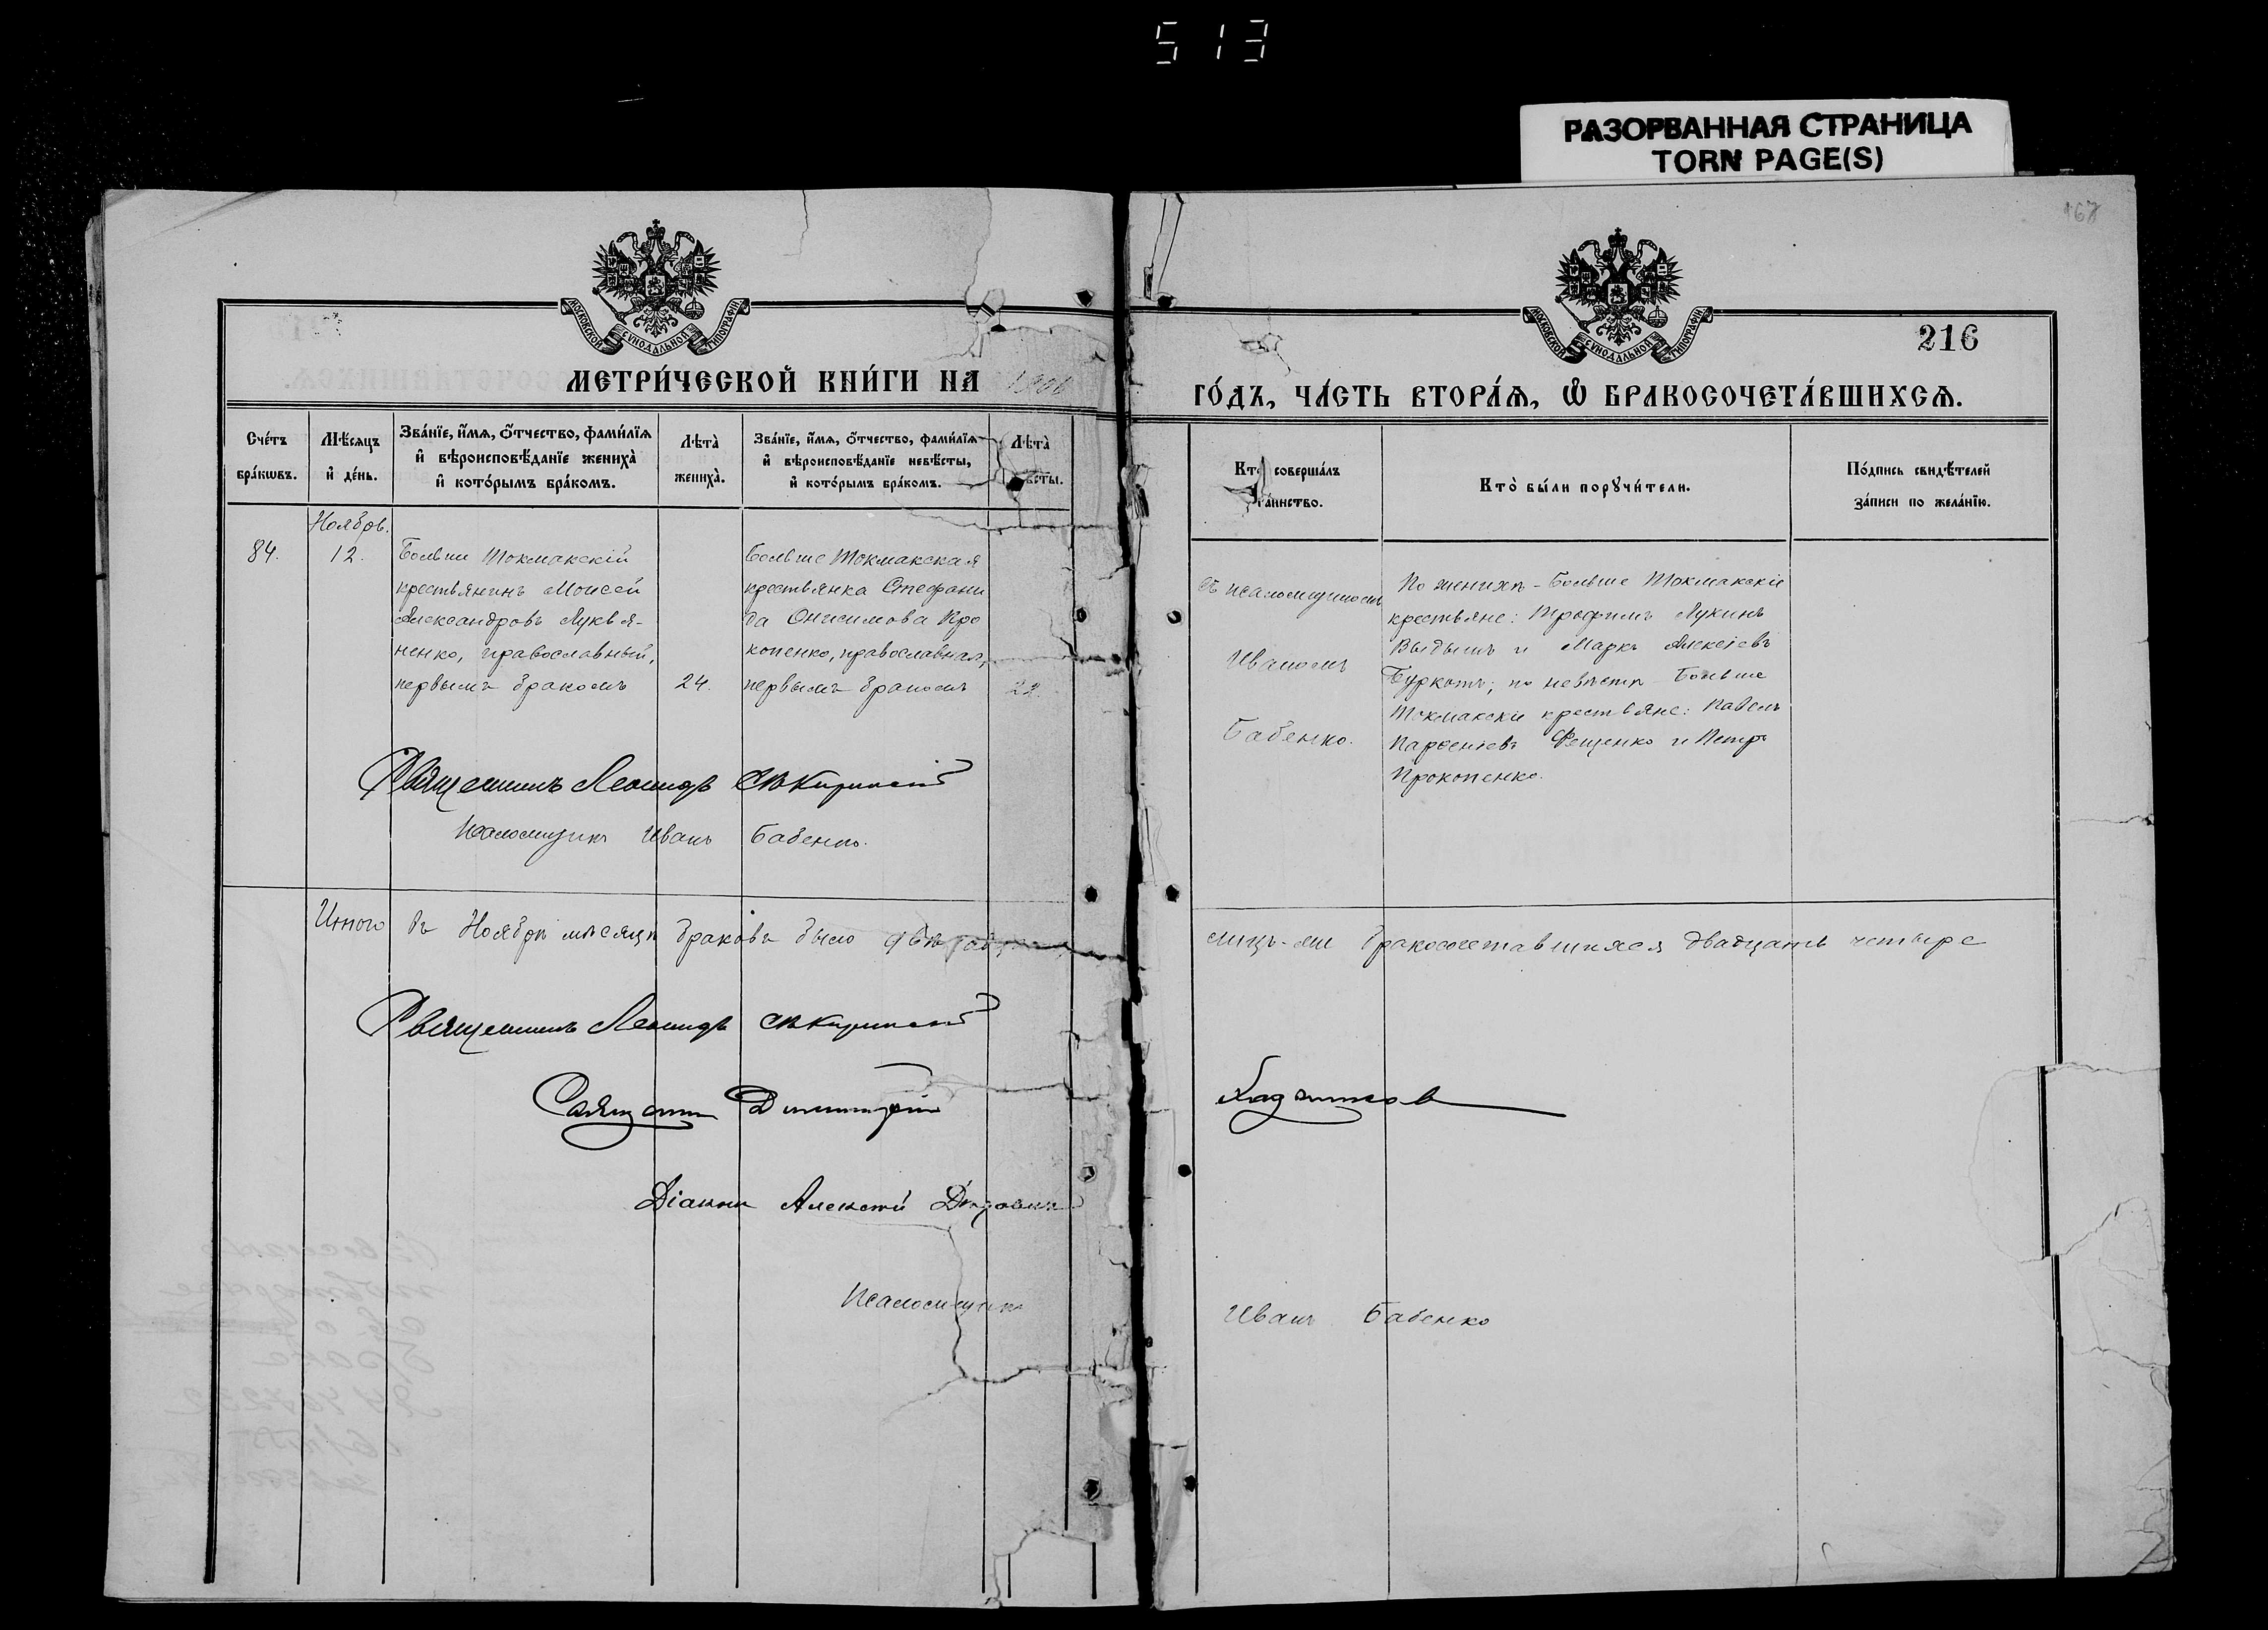 513
РАЗОРВАННАЯ СТРАНИЦА
TORN PAGE(S)
167
МОСКОВСКОЙ СѴНОДАЛЬНОЙ ТИПОГРАФІИ
МОСКОВСКОЙ СѴНОДАЛЬНОЙ ТИПОГРАФІИ
216
МЕТРИ́ЧЕСКОЙ КНИ́ГИ НА
ГО́ДЪ, ЧА́СТЬ ВТОРА́Я, Ѽ БРАКОСОЧЕТА́ВШИХСѦ.
Сче́тъ
бра́кѡвъ.
Мѣ́сяцъ
и҆ де́нь.
Зва́нїе, и҆́мѧ, ѻ҆́тчество, фами́лїѧ
и҆ вѣроисповѣ́данїе жениха̀
и҆ кото́рымъ бра́комъ.
Лѣта̀
жениха̀.
Зва́нїе, и҆́мѧ, ѻ҆́тчество, фами́лїѧ
и҆ вѣроисповѣ́данїе невѣ́сты,
и҆ кото́рымъ бра́комъ.
Лѣта̀
Кто совершалъ
та́инство.
Кто̀ бы́ли порꙋчи́тели.
По́дпись свидѣ́телей
за́писи по жела́нїю.
Ноябрь.
84.
12.
Больше Токмакскій
крестьянинъ Моисей
Александровъ Лукья-
ненко, православный,
первымъ бракомъ
24.
Больше Токмакская
крестьянка Стефани
да Онисимова Про
копенко, православная,
первымъ бракомъ
22.
Съ псаломщикомъ
Иваномъ
Бабенко.
По женихѣ - Больше Токмакскіе
крестьяне: Трофимъ Лукинъ
и Маркъ Алексіевъ
Буркотъ; по невѣстѣ Больше
Токмакскіе крестьяне: Павелъ
Парфеніевъ Фещенко и Петръ
Прокопенко.
Священникъ Леонидъ
Псаломщикъ Иванъ Бабенко.
Итого въ Ноябрѣ мѣсяцѣ браковъ было двѣнадцать
бракосочетавшихся двадцать четыре
Священникъ Леонидъ
Священникъ Димитрій
Діаконъ Алексѣй
Псаломщикъ
Иванъ Бабенко